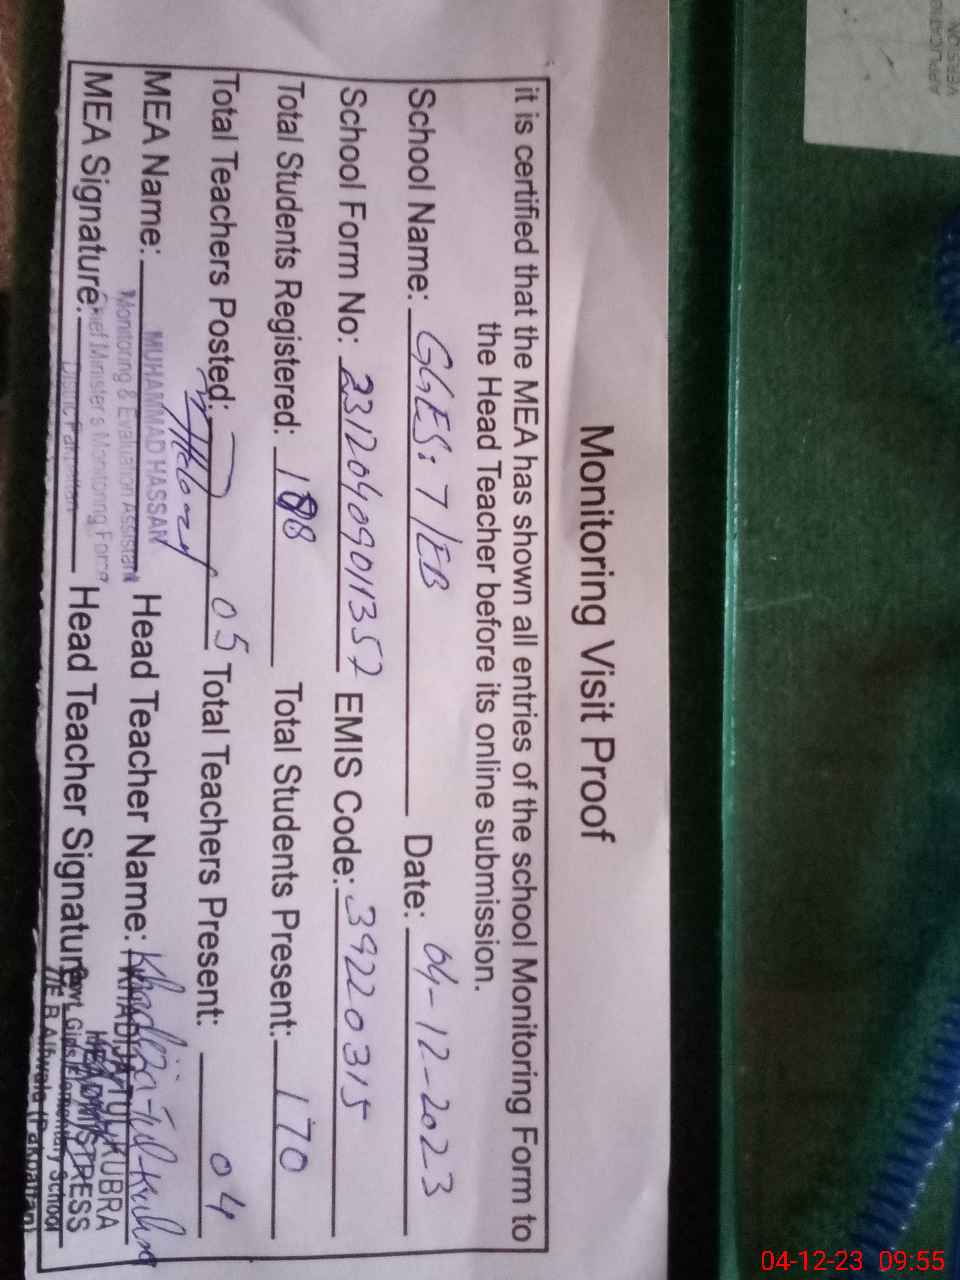 Monitoring Visit Proof
it is certified that the MEA has shown all entries of the school Monitoring Form to
the Head Teacher before its online submission.
School Name: GGES: 7/EB Date: 04-12-2023
School Form No: 2312040901135? EMIS Code: 39220315
Total Students Registered: 188 Total Students Present: 170
Total Teachers Posted: 05 Total Teachers Present: 04
MEA Name: MUHAMMAD HASSAN Head Teacher Name: Khadija-Tul-Kubra
Monitoring & Evaluation Assistant
KHADIJA TUL KUBRA
Chief Minister's Monitoring Force
HEADMISTRESS
MEA Signature: District Pakpattan Head Teacher Signature
Govt. Girls Elementary School
7/E.B Arifwala (Pakpattan)
04-12-23 09:55